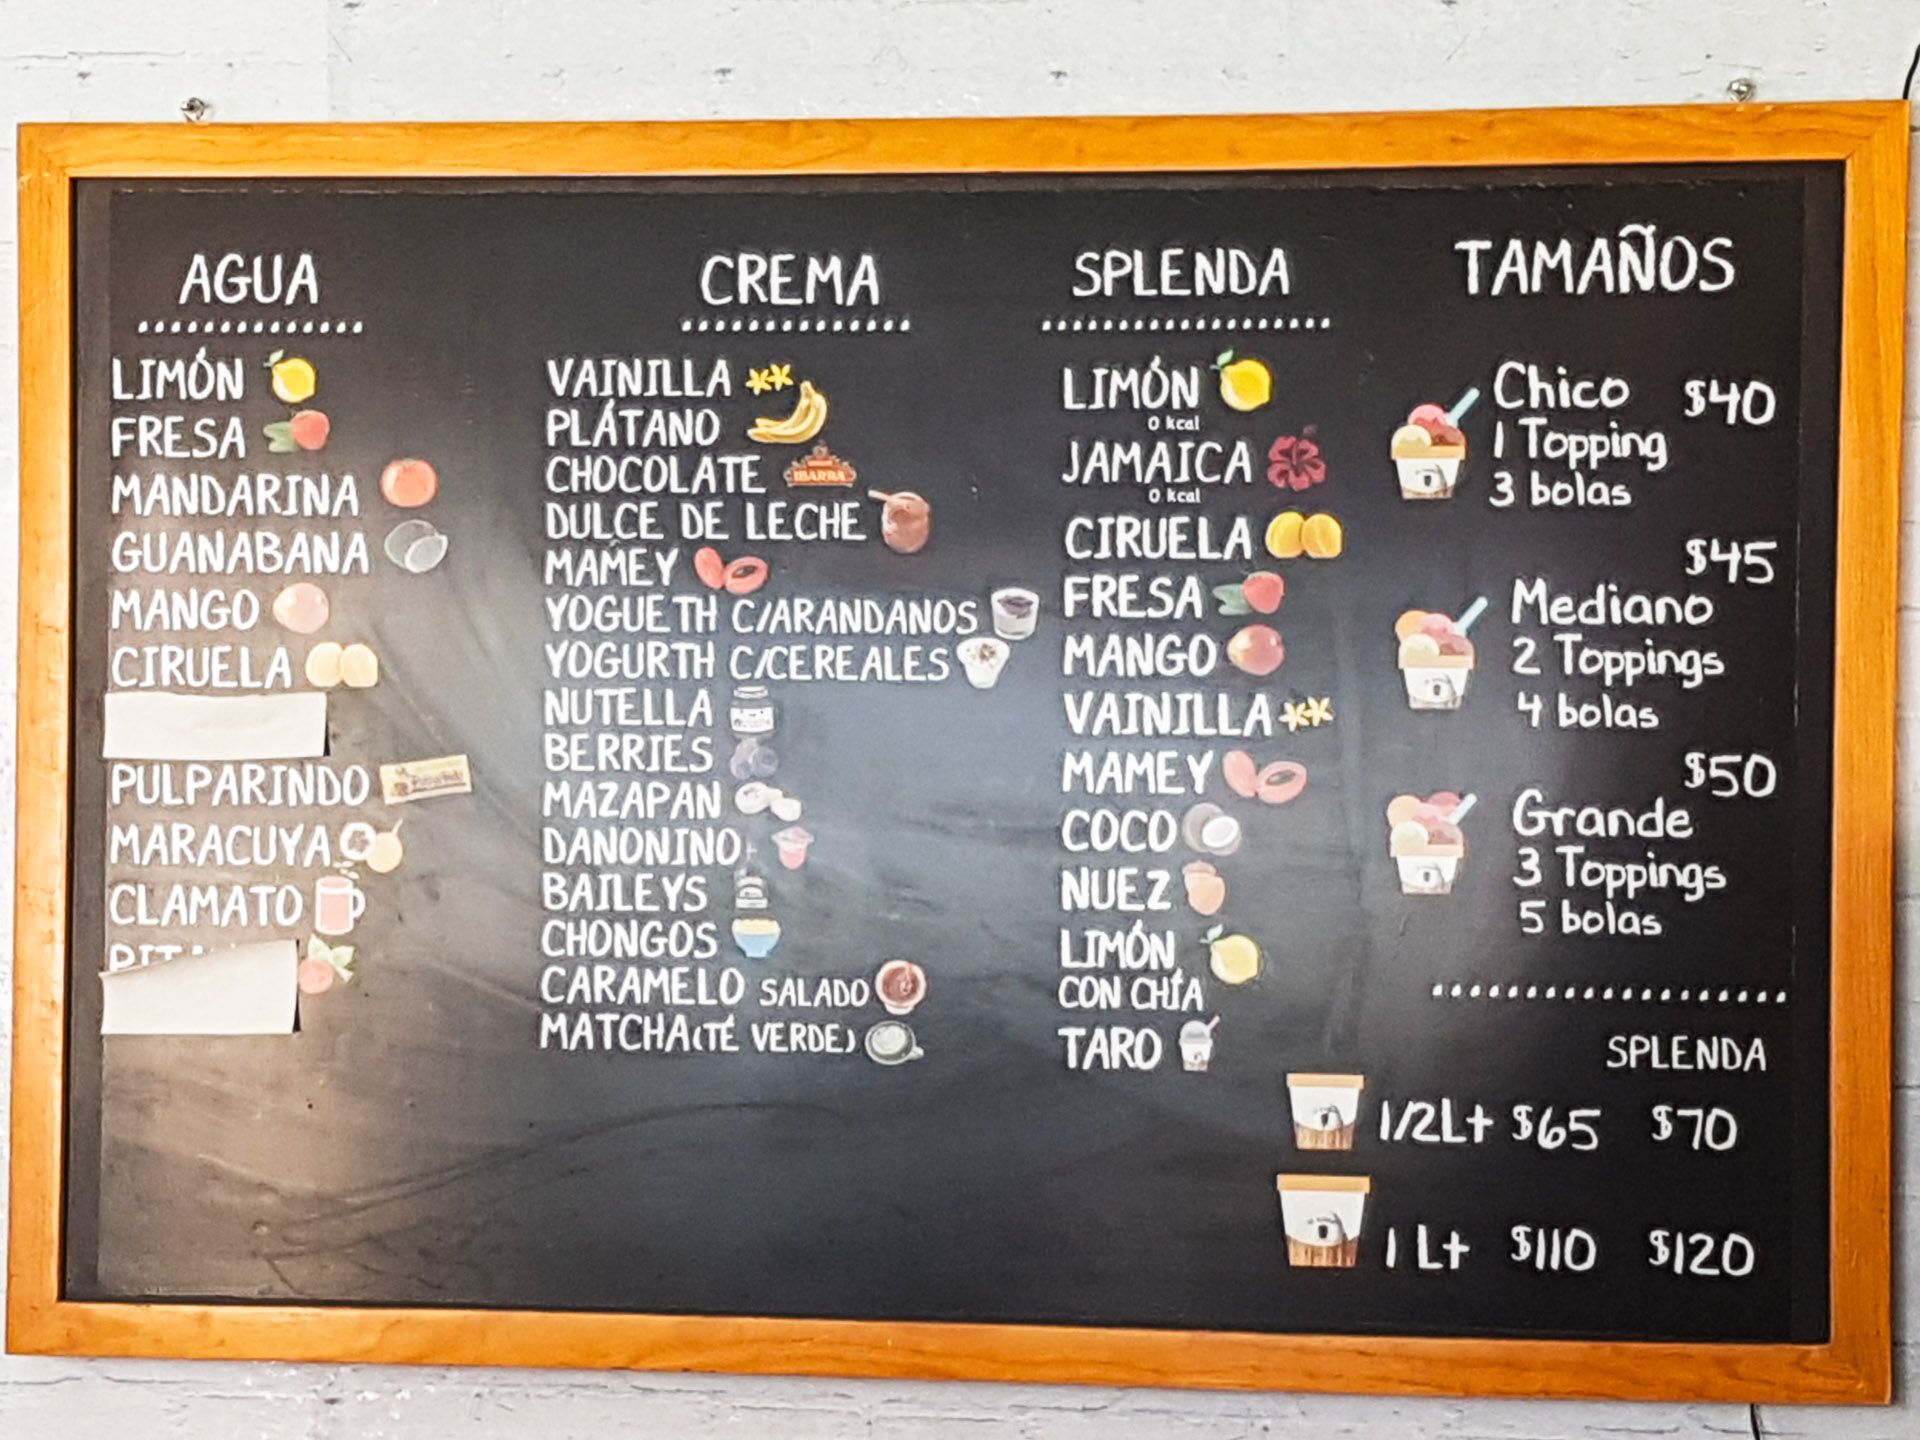 AGUA
LIMÓN
FRESA
MANDARINA
GUANABANA
MANGO
CIRUELA
PULPARINDO
MARACUYA
CLAMATO
CREMA
VAINILLA
PLÁTANO
CHOCOLATE
IBARRA
DULCE DE LECHE
MAMEY
YOGUETH C/ARANDANOS
YOGURTH C/CEREALES
NUTELLA
BERRIES
MAZAPAN
DANONINO
BAILEYS
CHONGOS
CARAMELO SALADO
MATCHA(TÉ VERDE)
SPLENDA
LIMÓN
0 kcal
JAMAICA
0 kcal
CIRUELA
FRESA
MANGO
VAINILLA
MAMEY
COCO
NUEZ
LIMÓN
CON CHÍA
TARO
TAMAÑOS
Chico $40
1 Topping
3 bolas
$45
Mediano
2 Toppings
4 bolas
$50
Grande
3 Toppings
5 bolas
SPLENDA
1/2Lt $65 $70
1 Lt $110 $120